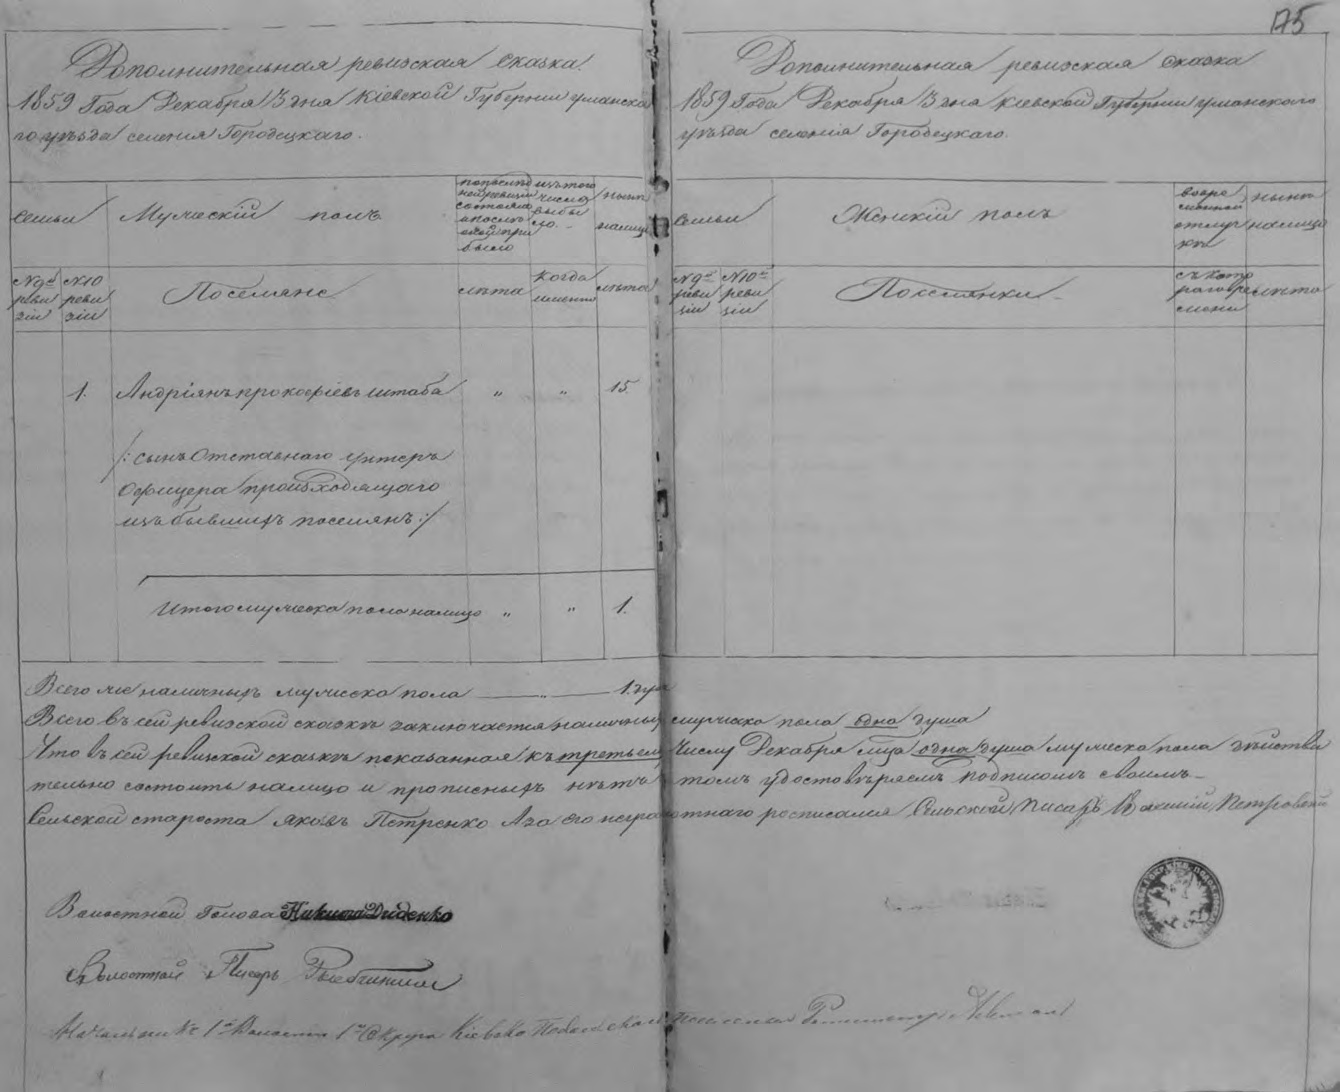 175
Дополнительная ревизская сказка
1859 Года Декабря 3 дня Кіевской Губерніи Уманска
го уѣзда селенія Городецкаго.
Семьи
Мужескій полъ
по послѣд
ней ревизіи
состояло
и послѣ
оной при
было
изъ того
число
выбы
ло.
нынѣ
налицо
№ 9й
реви
зіи
№ 10
реви
зіи
Поселяне
лѣта
Когда
именно
лѣта
1.
Андріянъ Прокофіевъ Штаба
"
"
15.
/: сынъ Отставного Унтеръ
Офицера происходящаго
изъ бывшихъ поселянъ :/
Итого мужеска пола налицо
"
"
1.
Дополнительная ревизская сказка
1859 Года Декабря 3 дня Кіевской Губерніи Уманскаго
уѣзда селенія Городецкаго.
Семьи
Женскій полъ
во вре
менной
отлуч
кѣ
нынѣ
налицо
№ 9й
реви
зіи
№ 10й
реви
зіи
Поселянки
съ кото
раго вре
мени
лѣта
Всего же наличныхъ мужеска пола — " — 1. душ
Всего въ сей ревизской сказкѣ заключается наличныхъ мужеска пола одна душа
Что въ сей ревизской сказкѣ показанная къ третьему числу Декабря м-ца одна душа мужеска пола дѣйстви
тельно состоитъ налицо и прописныхъ нѣтъ томъ удостовѣряемъ подписомъ своимъ
Сельской староста Яковъ Петренко А за его неграмотнаго росписался Сельской Писарь Петровскій
Волостной Голова Никита Диденко
Волостной Писарь
Начальникъ 1й Волости 1го Округа Кіевско Подольскаго поселенія Ротмистръ